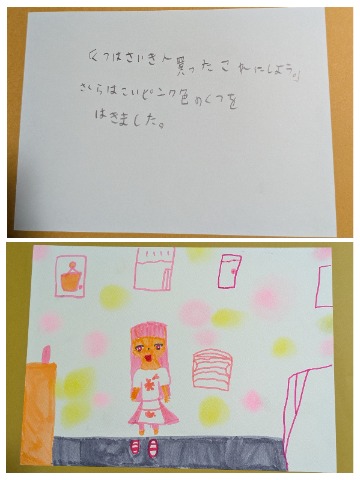 「くつはさいきん買ったこれにしよう。」
さくらはこいピンク色のくつを
はきました。